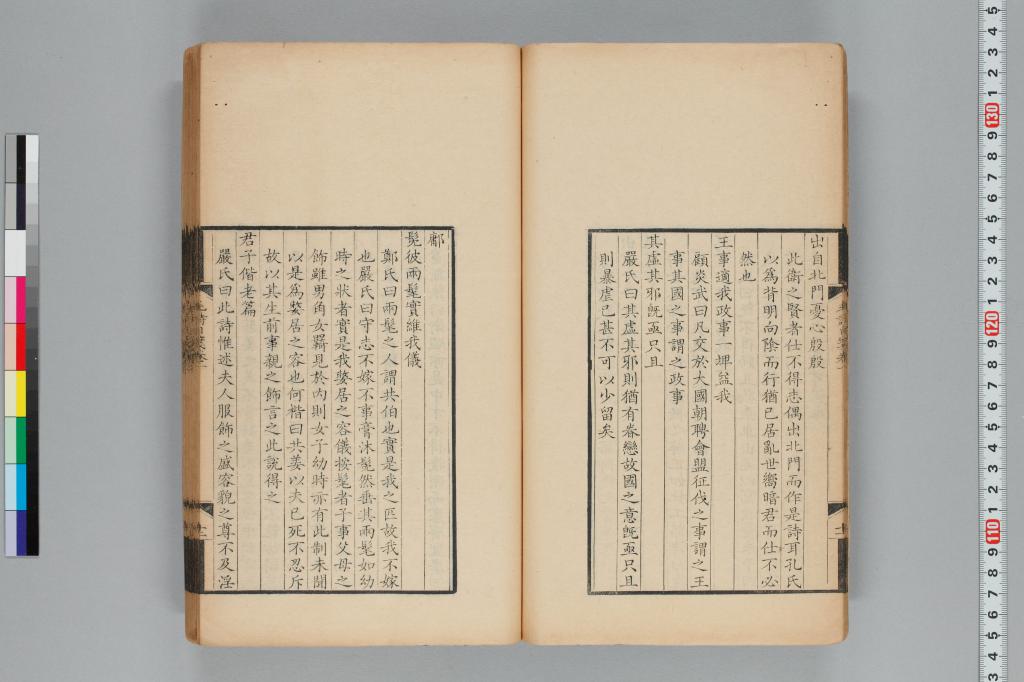 出自北門憂心殷殷
此衛之賢者仕不得志偶出北門而作是詩耳孔氏
以為背明向陰而行猶己居亂世嚮暗君而仕不必
然也
王事適我政事一埤益我
顧炎武曰凡交於大國朝聘會盟征伐之事謂之王
事其國之事謂之政事
其虛其邪旣亟只且
嚴氏曰其虛其邪則猶有眷戀故國之意旣亟只且
則暴虐已甚不可以少留矣
鄘
髧彼兩髦實維我儀
鄭氏曰兩髦之人謂共伯也實是我之匹故我不嫁
也嚴氏曰守志不嫁不事膏沐髧然垂其兩髦如幼
時之狀者實是我嫠居之容儀按髦者子事父母之
飾雖男角女羈見於內則女子幼時亦有此制未聞
以是為嫠居之容也何楷曰共姜以夫已死不忍斥
故以其生前事親之飾言之此說得之
君子偕老篇
嚴氏曰此詩惟述夫人服飾之盛容貌之尊不及淫